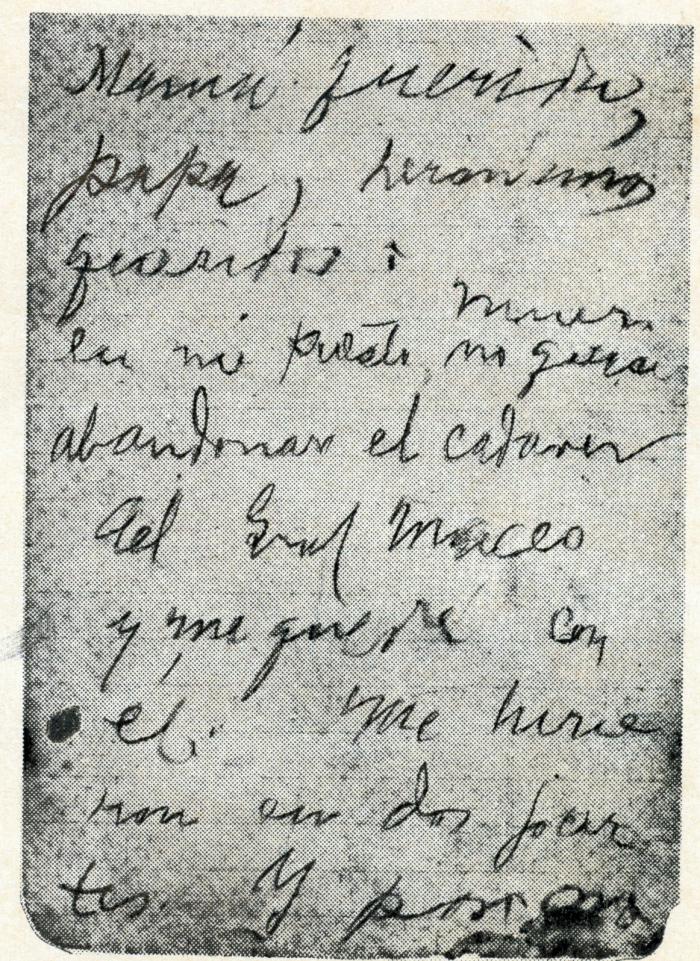 Mamá querida,
papá, hermanos
queridos:
muero
en mi puesto, no quise
abandonar el cadaver
del Gral Maceo
y me quedé con
él. Me hirie
ron en dos par
tes. Y por